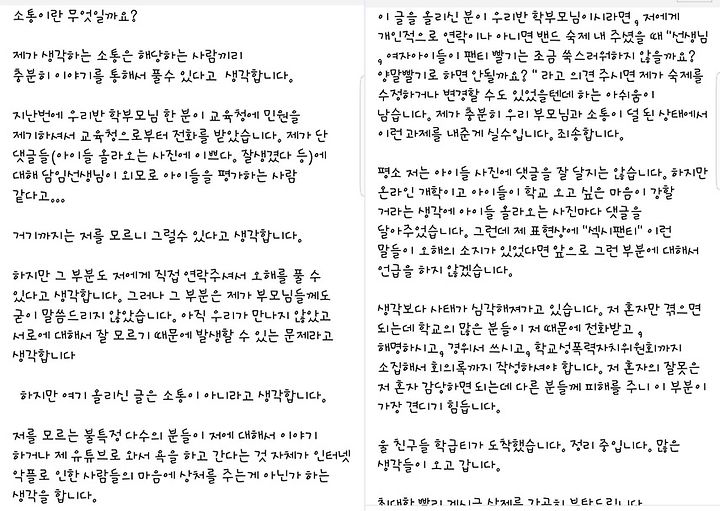 소통이란 무엇일까요?
제가 생각하는 소통은 해당하는 사람끼리
충분히 이야기를 통해서 풀수 있다고 생각합니다.
지난번에 우리반 학부모님 한 분이 교육청에 민원을
제기하셔서 교육청으로부터 전화를 받았습니다. 제가 단
댓글들(아이들 올라오는 사진에 이쁘다. 잘생겼다 등)에
대해 담임선생님이 외모로 아이들을 평가하는 사람
같다고,,,
거기까지는 저를 모르니 그럴수 있다고 생각합니다.
하지만 그 부분도 저에게 직접 연락주셔서 오해를 풀 수
있다고 생각합니다. 그러나 그 부분은 제가 부모님들께도
굳이 말씀드리지 않았습니다. 아직 우리가 만나지 않았고
서로에 대해서 잘 모르기 때문에 발생할 수 있는 문제라고
생각합니다
하지만 여기 올리신 글은 소통이 아니라고 생각합니다.
저를 모르는 불특정 다수의 분들이 저에 대해서 이야기
하거나 제 유튜브로 와서 욕을 하고 간다는 것 자체가 인터넷
악플로 인한 사람들의 마음에 상처를 주는게 아닌가 하는
생각을 합니다.
이 글을 올리신 분이 우리반 학부모님이시라면, 저에게
개인적으로 연락이나 아니면 밴드 숙제 내 주셨을 때 "선생님
, 여자아이들이 팬티 빨기는 조금 쑥스러워하지 않을까요?
양말빨기로 하면 안될까요?" 라고 의견 주시면 제가 숙제를
수정하거나 변경할 수도 있었을텐데 하는 아쉬움이
남습니다. 제가 충분히 우리 부모님과 소통이 덜 된 상태에서
이런 과제를 내준게 실수입니다. 죄송합니다.
평소 저는 아이들 사진에 댓글을 잘 달지는 않습니다. 하지만
온라인 개학이고 아이들이 학교 오고 싶은 마음이 강할
거라는 생각에 아이들 올라오는 사진마다 댓글을
달아주었습니다. 그런데 제 표현상에 "섹시팬티" 이런
말들이 오해의 소지가 있었다면 앞으로 그런 부분에 대해서
언급을 하지 않겠습니다.
생각보다 사태가 심각해져가고 있습니다. 저 혼자만 겪으면
되는데 학교의 많은 분들이 저 때문에 전화받고,
해명하시고, 경위서 쓰시고, 학교성폭력자치위원회까지
소집해서 회의록까지 작성하셔야 합니다. 저 혼자의 잘못은
저 혼자 감당하면 되는데 다른 분들께 피해를 주니 이 부분이
가장 견디기 힘듭니다.
울 친구들 학급티가 도착했습니다. 정리 중입니다. 많은
생각들이 오고 갑니다.
최대한 빨리 게시글 삭제를 간곡히 부탁드립니다